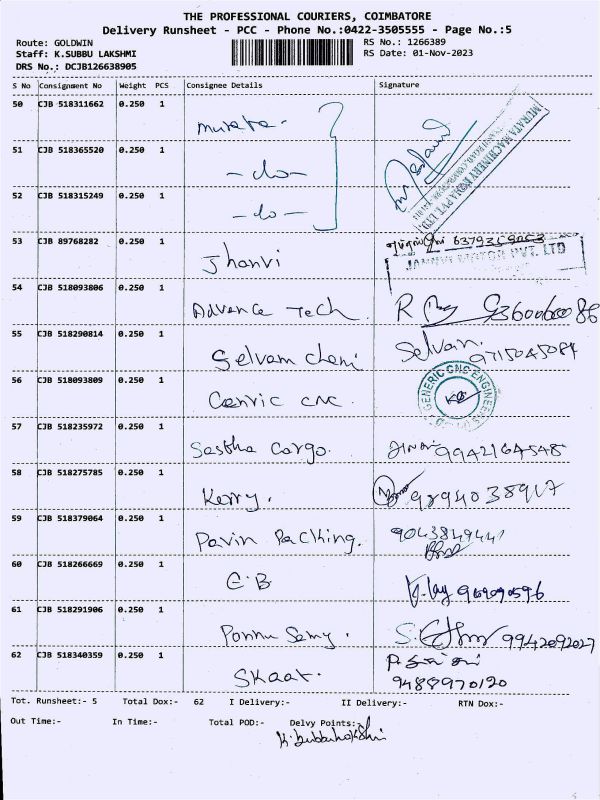 THE PROFESSIONAL COURIERS, COIMBATORE
Delivery Runsheet - PCC - Phone No.:0422-3505555 - Page No.:5
Route: GOLDWIN
RS No.: 1266389
Staff: K.SUBBU LAKSHMI
RS Date: 01-Nov-2023
DRS No.: DCJB126638905
S No Consignment No Weight PCS Consignee Details Signature
50 CJB 518311662 0.250 1 Murata.
51 CJB 518365520 0.250 1 - do -
52 CJB 518315249 0.250 1 - do -
MURATA MACHINERY INDIA PVT. LTD
53 CJB 89768282 0.250 1 Jhanvi 6379359053
JANNVI MOTOR PVT. LTD
54 CJB 518093806 0.250 1 Advance Tech. R
55 CJB 518290814 0.250 1 Selvam Chemi Selvan. 9715045084
56 CJB 518093809 0.250 1 Cenric CNC. GENERIC CNC ENGINEERS
57 CJB 518235972 0.250 1 Sastha Cargo. 9942164548
58 CJB 518275785 0.250 1 Kerry. 9894038917
59 CJB 518379064 0.250 1 Pavin Packing. 9043849441
60 CJB 518266669 0.250 1 E.B
61 CJB 518291906 0.250 1 Ponnu Samy. 9942092027
62 CJB 518340359 0.250 1 Skaat. 9488970120
Tot. Runsheet:- 5 Total Dox:- 62 I Delivery:- II Delivery:- RTN Dox:-
Out Time:- In Time:- Total POD:- Delvy Points:-